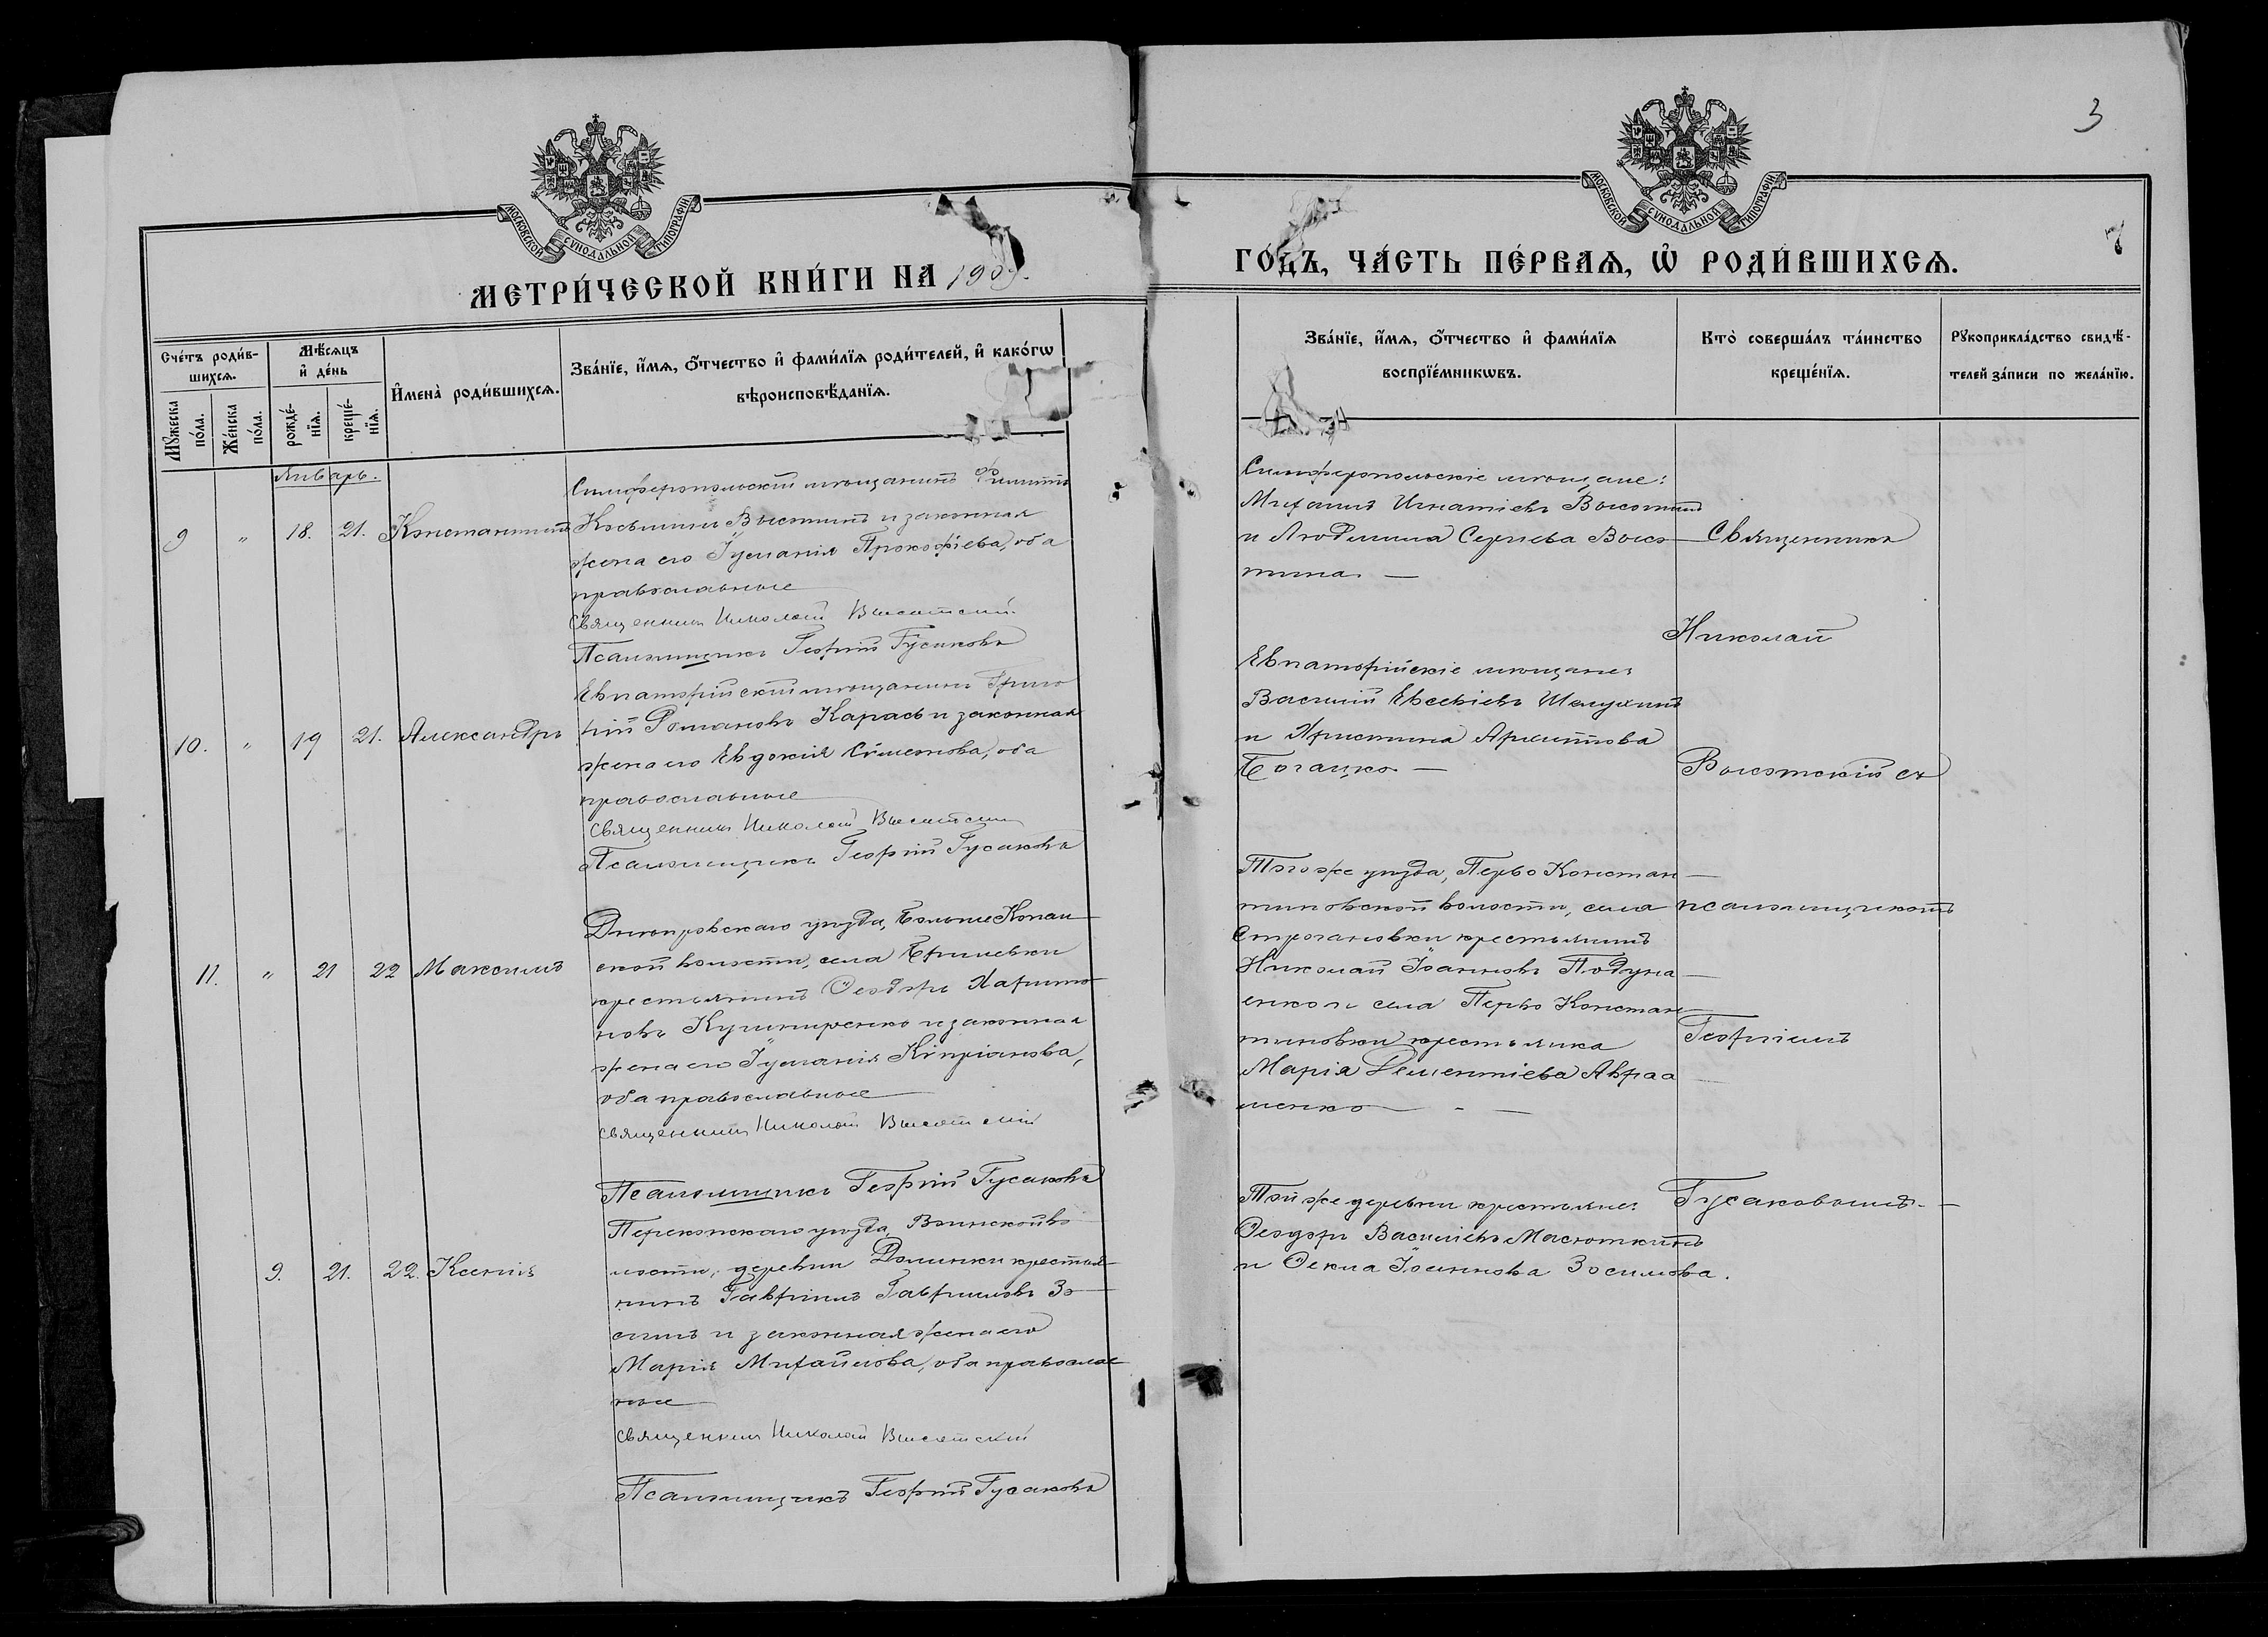 3
7
МОСКОВСКОЙ СѴНОДАЛЬНОЙ ТИПОГРАФІИ
МОСКОВСКОЙ СѴНОДАЛЬНОЙ ТИПОГРАФІИ
МЕТРИ́ЧЕСКОЙ КНИ́ГИ НА 190
ГО́ДЪ, ЧА́СТЬ ПЕ́РВАѦ, Ѡ҆ РОДИ́ВШИХСѦ.
Сче́тъ роди́в-
шихсѧ.
Мѣ́сѧцъ
и҆ де́нь
Мꙋ́жеска по́ла.
Же́нска по́ла.
рожде́-
нїѧ.
креще́-
нїѧ.
И҆мена̀ роди́вшихсѧ.
Зва́нїе, и҆́мѧ, ѻ҆́тчество и҆ фами́лїѧ роди́телей, и҆ како́гѡ
вѣроисповѣ́данїѧ.
Зва́нїе, и҆́мѧ, ѻ҆́тчество и҆ фами́лїѧ
воспрїе́мникѡвъ.
Кто̀ соверша́лъ та́инство
креще́нїѧ.
Рꙋкоприкла́дство свидѣ́-
телей за́писи по жела́нїю.
Январь.
9 " 18. 21. Константинъ
Симферопольскій мѣщанинъ Филиппъ
Косьминъ Высотинъ и законная
жена его Іуліанія Прокофіева, оба
православные
Священникъ Николай Высотскій
Псаломщикъ Георгій Гусаковъ
Симферопольскіе мѣщане:
Михаилъ Игнатіевъ Высотинъ
и Людмила Сергіева Высо
тина. —
10. " 19 21. Александръ
Евпаторійскій мѣщанинъ Григо
рій Романовъ Карась и законная
жена его Евдокія Симеонова, оба
православные
Священникъ Николай Высотскій
Псаломщикъ Георгій Гусаковъ
Евпаторійскіе мѣщане
Василій Евсевіевъ
и Христина
Богацко —
11. " 21 22 Максимъ
Днѣпровскаго уѣзда, Больше Копан
ской волости, села Брилевки
крестьянинъ Ѳеодоръ Харито
новъ Кушниренко и законная
жена его Іуліанія Кипріанова,
оба православные
Священникъ Николай Высотскій
Псаломщикъ Георгій Гусаковъ
Того же уѣзда, Перво Констан
тиновской волости, села
Строгановки крестьянинъ
Николай Іоанновъ
и села Перво Констан
тиновки крестьянка
Марія Дементіева Авраа
менко
9. 21. 22. Ксенія
Перекопскаго уѣзда, Воинской во
лости, деревни Долинки крестья
нинъ Гавріилъ Гавріиловъ Зо
симъ и законная жена его
Марія Михайлова, оба православ
ные
Священникъ Николай Высотскій
Псаломщикъ Георгій Гусаковъ
Той же деревни крестьяне
Ѳеодоръ Василіевъ Масюткинъ
и Ѳекла Іоаннова Зосимова.
Священникъ
Николай
Высотскій съ
псаломщикомъ
Георгіемъ
Гусаковымъ. —